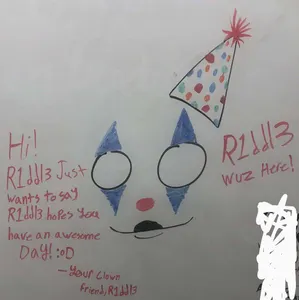 Hi!
R1ddl3 Just
wants to say
R1ddl3 hopes you
have an awesome
Day! :oD
—Your Clown
Friend, R1ddl3
R1ddl3
wuz Here!